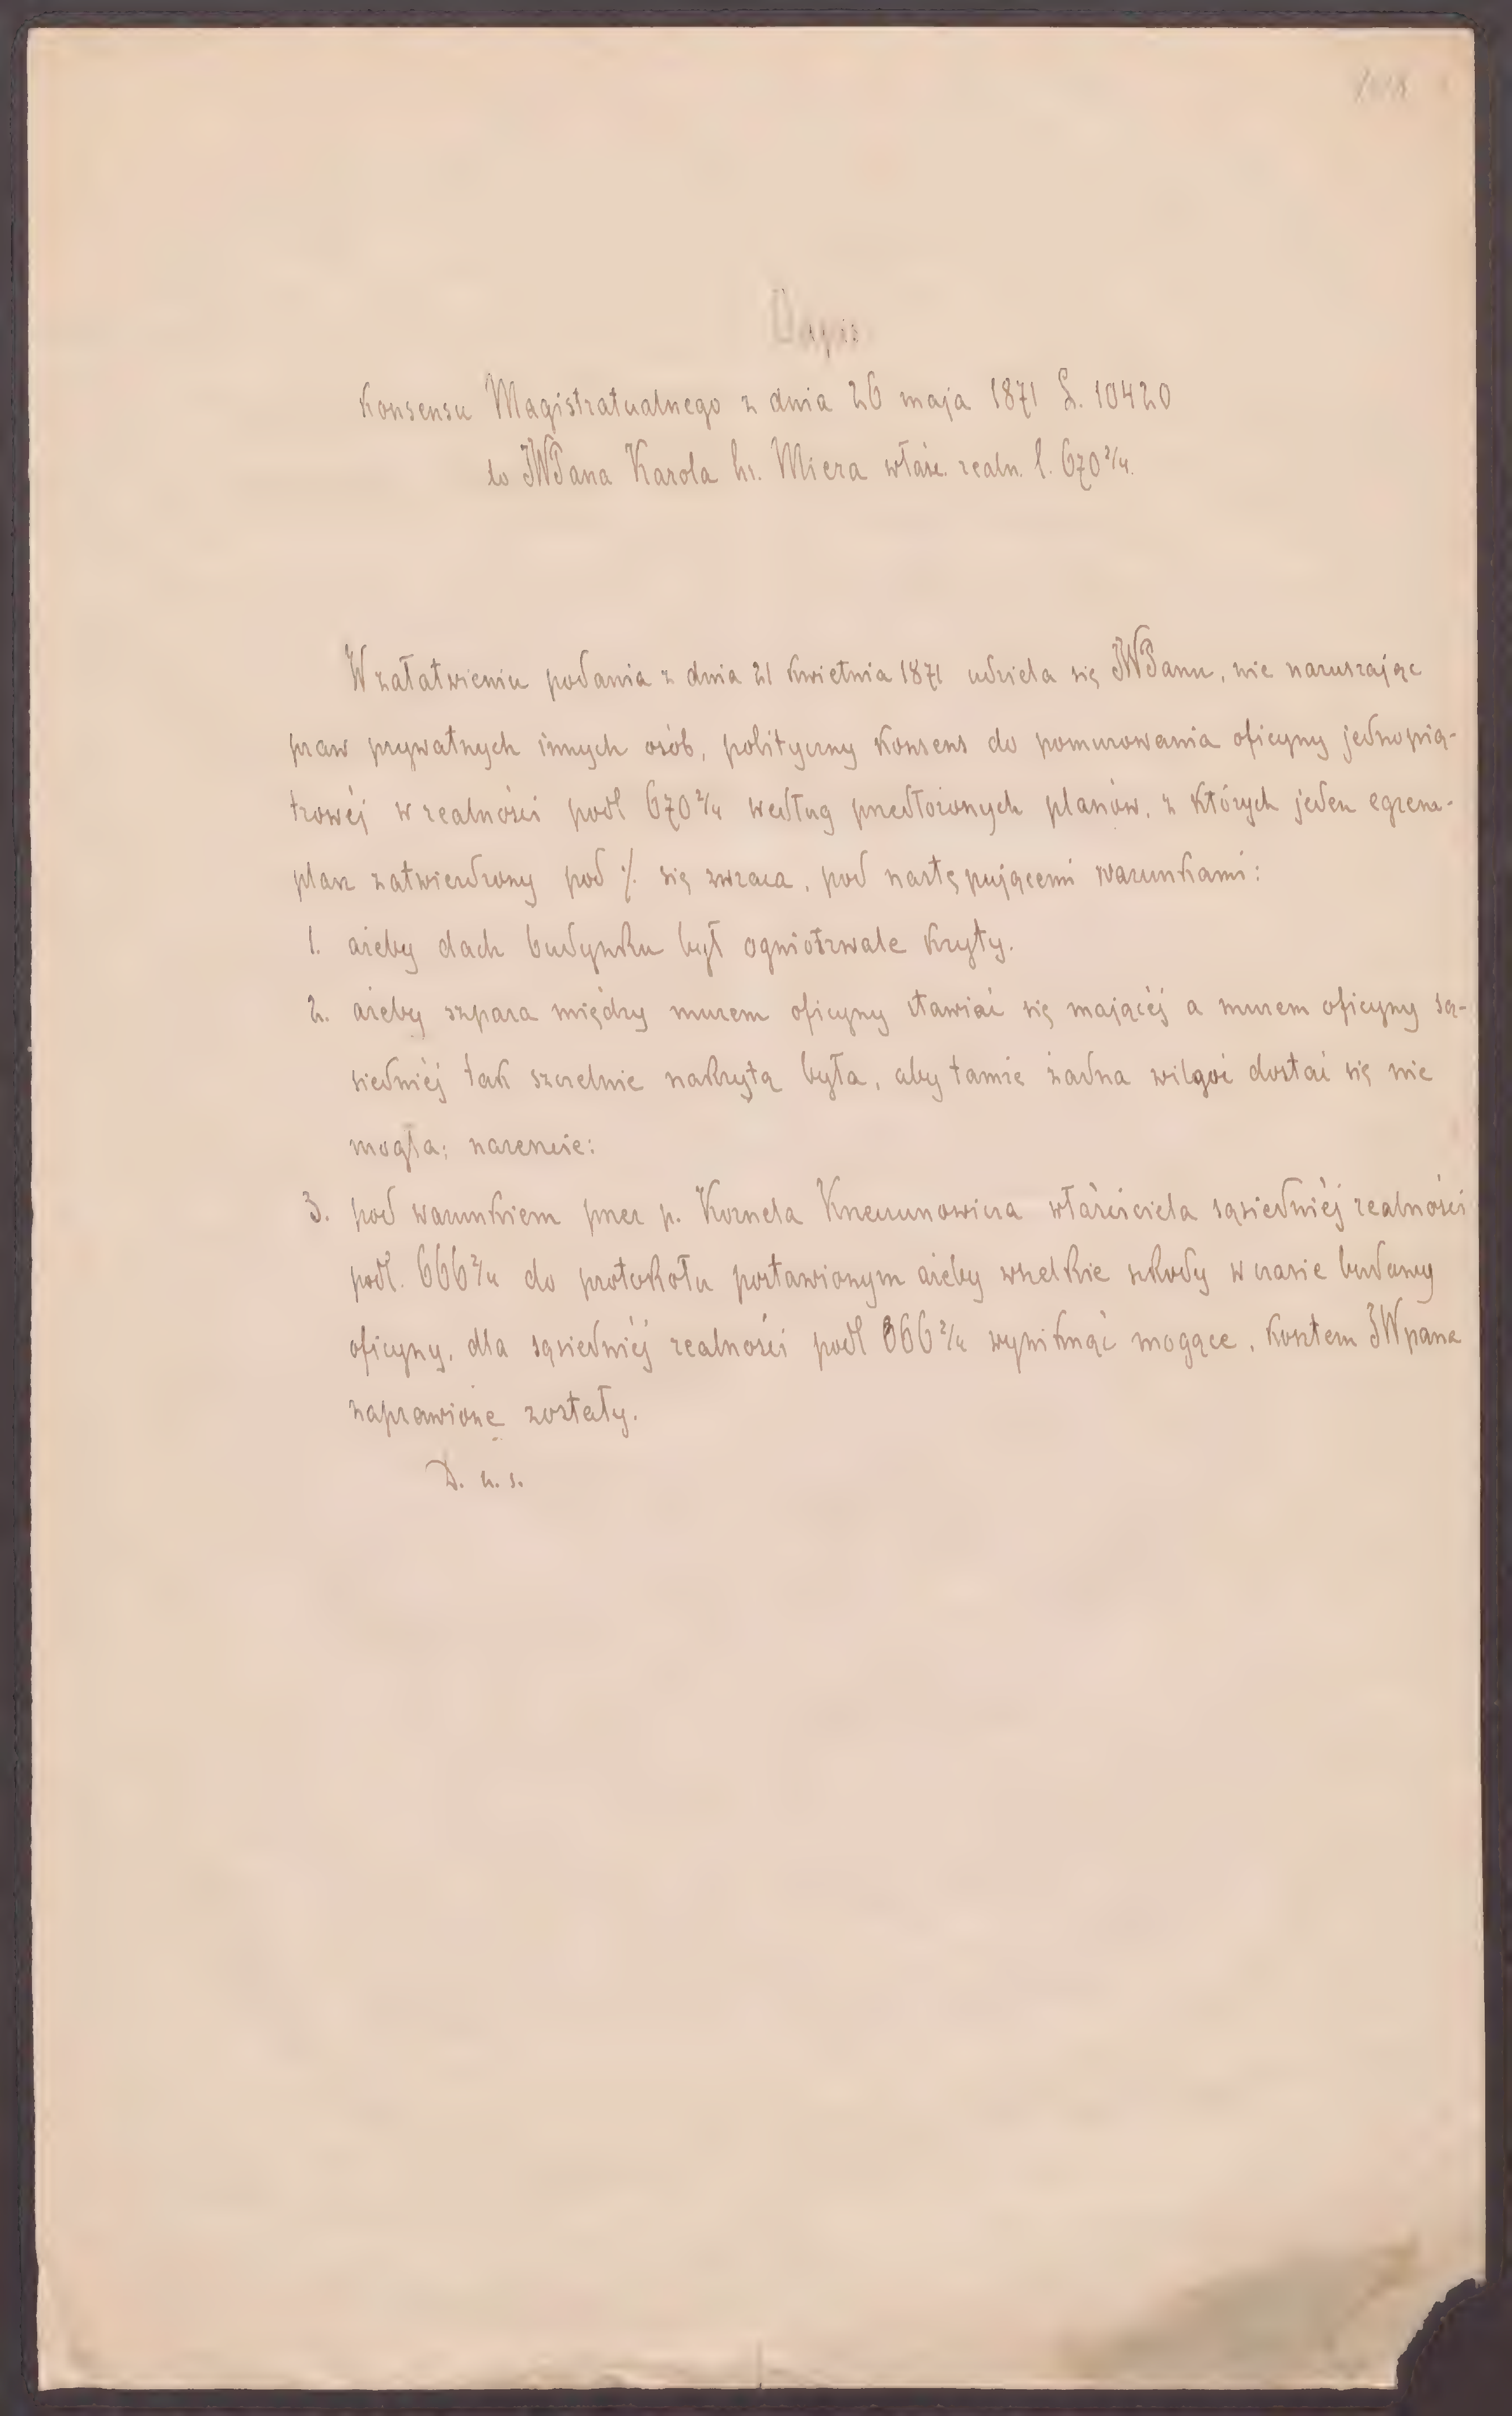 Odpis
Konsensu Magistratualnego z dnia 26 maja 1871 L. 10420
do JWPana Karola hr. Miera właśc. realn. l. 670 2/4.
W załatwieniu podania z dnia 21 kwietnia 1871 udziela się JWPanu, nie naruszając
praw prywatnych innych osób, polityczny konsens do pomurowania oficyny jednopią-
trowéj w realności podl 670 2/4 według przedłożonych planów, z których jeden egzem-
plarz zatwierdzony pod ·/. się zwraca, pod następującemi warunkami:
1. ażeby dach budynku był ogniotrwale kryty.
2. ażeby szpara między murem oficyny stawiać się mającéj a murem oficyny są-
siedniéj tak szczelnie nakrytą była, aby tamże żadna wilgoć dostać się nie
mogła; nareszcie:
3. pod warunkiem przez p. Kornela Krzeczunowicza właściciela sąsiedniéj realności
podl. 666 2/4 do protokołu postawionym ażeby wszelkie szkody w czasie budowy
oficyny, dla sąsiedniéj realności podl 666 2/4 wyniknąć mogące, kosztem JWpana
naprawione zostały.
D. u. s.